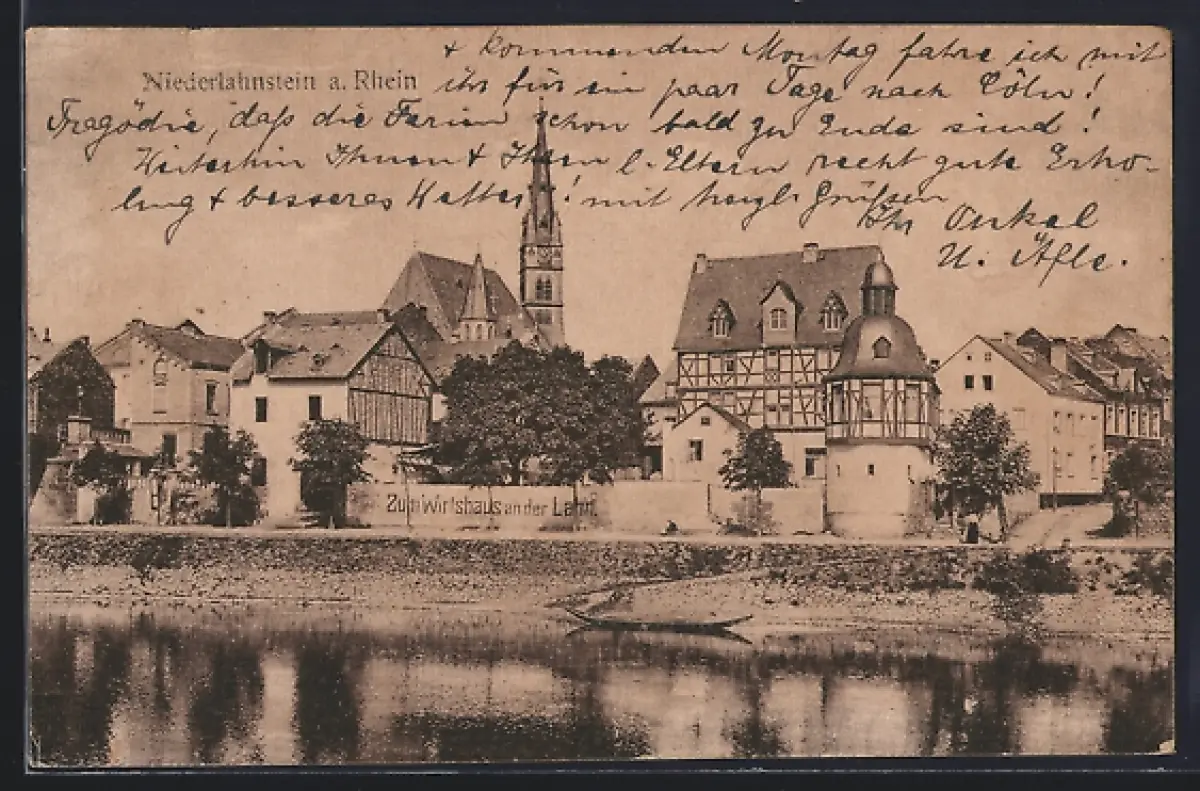 + kommenden Montag fahre ich mit
Niederlahnstein a. Rhein
ihr für ein paar Tage nach Cöln!
Tragödie, daß die Ferien schon bald zu Ende sind!
Weiterhin Ihnen + Ihren l. Eltern recht gute Erho-
lung + besseres Wetter! mit herzl. Grüßen
Ihr Onkel
u.
Zum Wirtshaus an der Lahn.